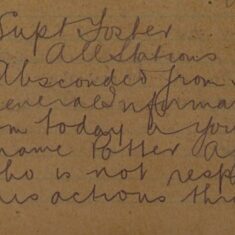 Supt Foster
All Stations
Absconded from
General Informa
m today a you
name Potter A
ho is not resp
his actions thr